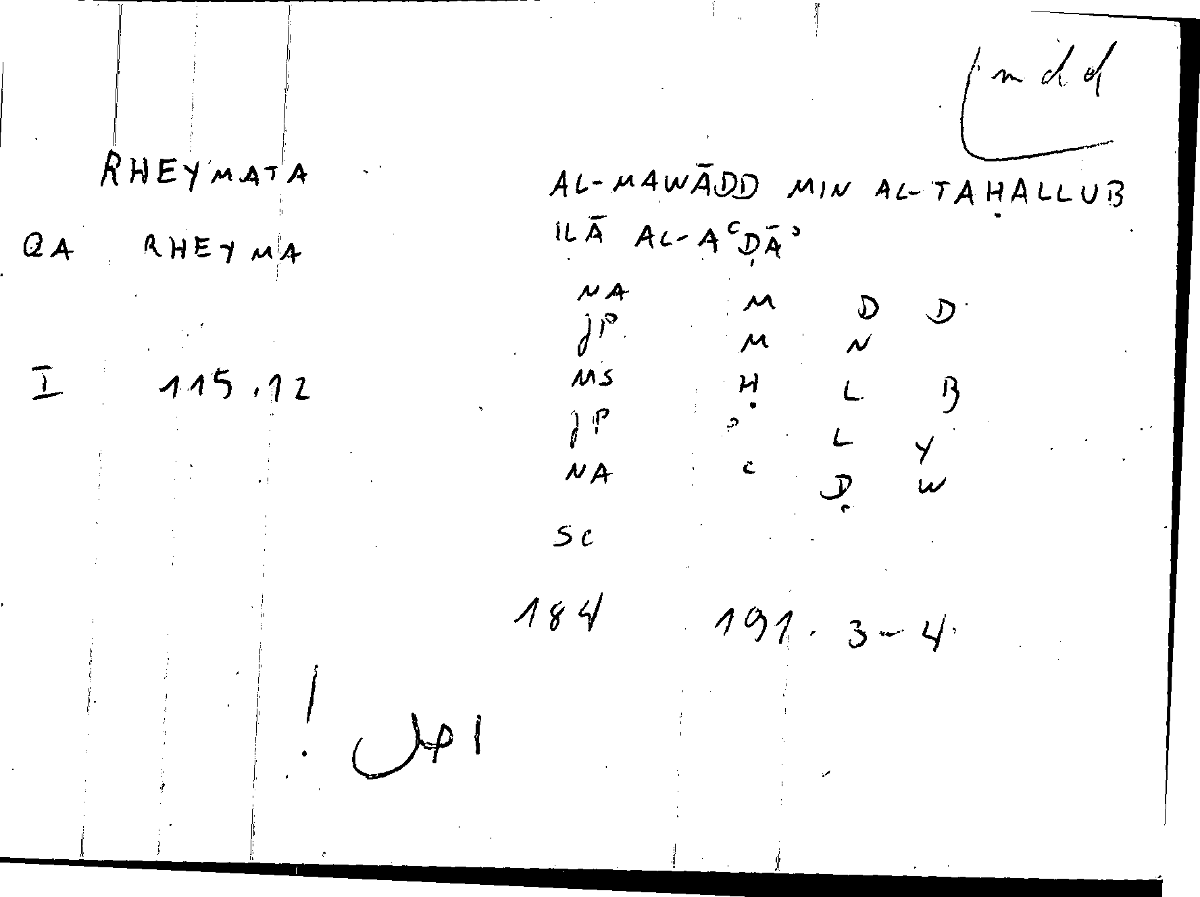 mdd
RHEYMATA AL-MAWĀDD MIN AL-TAḤALLUB
QA RHEYMA ILĀ AL-AʿḌĀʾ
NA M D D
JP M N
I 115.12 MS Ḥ L B
JP ʾ L Y
NA ʿ Ḍ W
SC
184 191. 3-4
! اصل